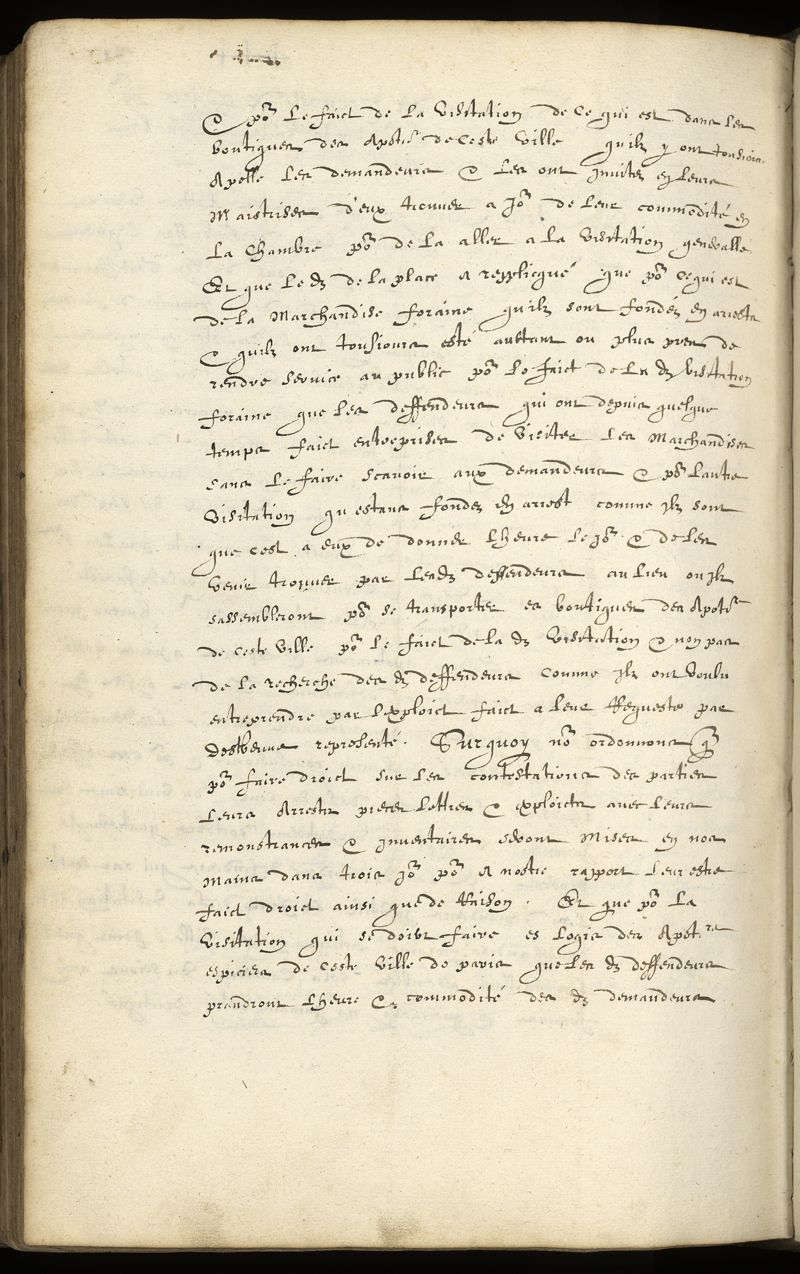 & po.r le faict de la visitation de ce qui est dans les
boutiques des Apot.res de ceste ville quilz y ont tousiours
Apellé les demandeurs & les ont invitez en leurs
Maistrises d'eux trouver a jo.r de leur commodité en
La Chambre po.r de la aller a la visitation generalle
Et que led. de la place a replicqué que po.r ce qui est
de la Marchandise foraine quilz sont fondez en arrests
& quilz ont tousiours esté aultant ou plus prez de
rendre service au public po.r le faict de lad. visitation
foraine que les deffendeurs qui ont depuis quelque
temps faict entreprises de visiter les Marchandises
sans le faire scavoir aux demandeurs & po.r lautre
visitation qu estans fondez en arrest comme ilz sont
que cest a eux de donner lheure le jo.r & de les
venir trouver par lesd. deffendeurs au lieu ou ilz
sassembleront po.r se transporter es boutiques des Apot.res
de ceste ville po.r le faict de lad. visitation & non pas
de la recherche desd. deffendeurs comme ilz ont voulu
entreprendre par lexploict faict a leur Requeste par
representé. Surquoy no.s ordonnons q.
po.r faire droict sur les contestations des parties
leurs Arrestz pieces lettres & exploicts avec leurs
remonstrances & inventaires seront Mises en nos
Mains dans trois jo.rs po.r a nostre rapport leur estre
faict droict ainsi que de Raison. Et que po.r la
visitation qui se doibt faire es logis des Apot.res
espiciers de ceste ville de paris que lesd. deffendeurs
prandront lheure & commodité desd. demandeurs